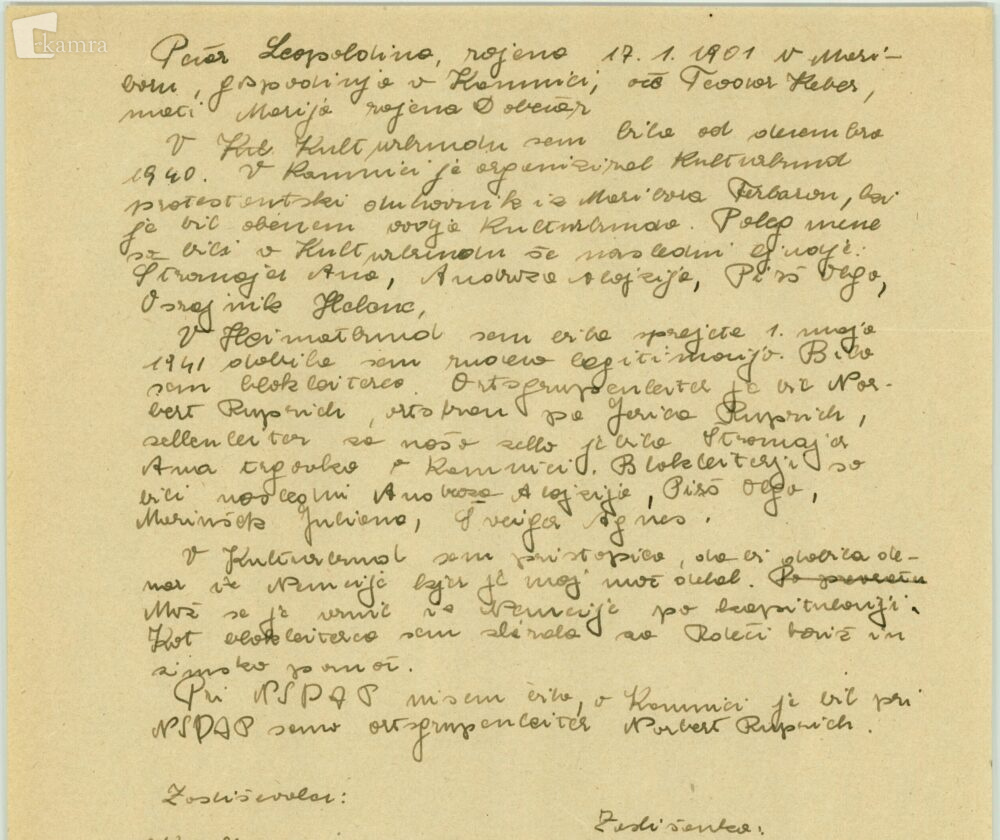 kamra
Pečar Leopoldina, rojena 17. 1. 1901 v Mari-
boru, gospodinja v Kamnici, oče Teodor Keber,
mati Marija rojena
V Kulturbundu sem bila od decembra
1940. V Kamnici je organiziral Kulturbund
protestantski duhovnik iz Maribora ki
je bil obenem vodja Kulturbunda. Poleg mene
so bili v Kulturbundu še naslednji ljudje:
Stromajer Ana, Androza Alojzija, Pirš Olga,
Osrajnik Helena,
V Heimatbund sem bila sprejeta 1. maja
1941 dobila sem rudečo legitimacijo. Bila
sem blokleiterca. Ortsgrupenleiter je bil Nor-
bert Ruprich, ortsfrau pa Jerica Ruprich,
zellenleiter za našo zello je bila Stromajer
Ana trgovka v Kamnici. Blokleiterji so
bili nasledni Androza Alojzija, Pirš Olga,
Marinšek Juliana, Šveiger Agnes.
V Kulturbund sem pristopila, da bi dobila de-
nar iz Nemčije kjer je moj mož delal. Po povratu
Mož se je vrnil iz Nemčije po kapitulaciji.
Kot blokleiterca sem zbirala za Rdeči križ in
zimsko pomoč.
Pri NSDAP nisem bila, v Kamnici je bil pri
NSDAP samo ortsgrupenleiter Norbert Ruprich.
Zasliševalec:
Zaslišanka: